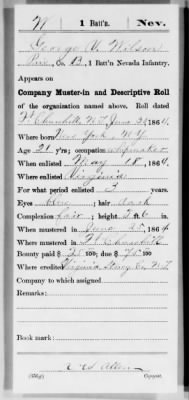 W 1 Batt'n. Nev.
George W. Wilson
Priv., Co. B, 1 Batt'n Nevada Infantry.
Appears on
Company Muster-in and Descriptive Roll
of the organization named above. Roll dated
Ft Churchill, N.T. June 25, 1864.
Where born New York, N.Y.
Age 21 y'rs; occupation
When enlisted May 18, 1864.
Where enlisted Virginia
For what period enlisted 3 years.
Eyes blue; hair dark
Complexion fair; height 5 ft. 6 in.
When mustered in June 25, 1864
Where mustered in Ft Churchill
Bounty paid $ 25 100; due $ 75 100
Where credited Virginia, Storey Co. N.T.
Company to which assigned
Remarks:
Book mark:
Copyist.